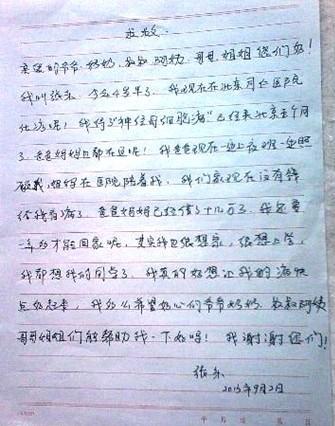 求救
亲爱的爷爷 奶奶、叔叔 阿姨、哥哥、姐姐 您们好!
我叫张乐 今年4岁半了、我现在在北京 医院
住院呢! 我得了"神经母细胞瘤"已经来北京三个月
了、爸爸妈妈也都在这呢! 我爸爸现在一边上夜班一边照
顾我,妈妈在医院陪着我、我们家现在没有钱
给我看病了、爸爸妈妈已经借了十几万了、我还要
一年多才能回家呢、其实我也很想家、很想上学、
我都想我的同学了、我真的好想让我的病快
点好起来、我多么希望好心的爷爷奶奶、叔叔阿姨
哥哥姐姐们能帮助我一下好吗! 我谢谢您们!
张乐
2013年9月2日
年 月 日